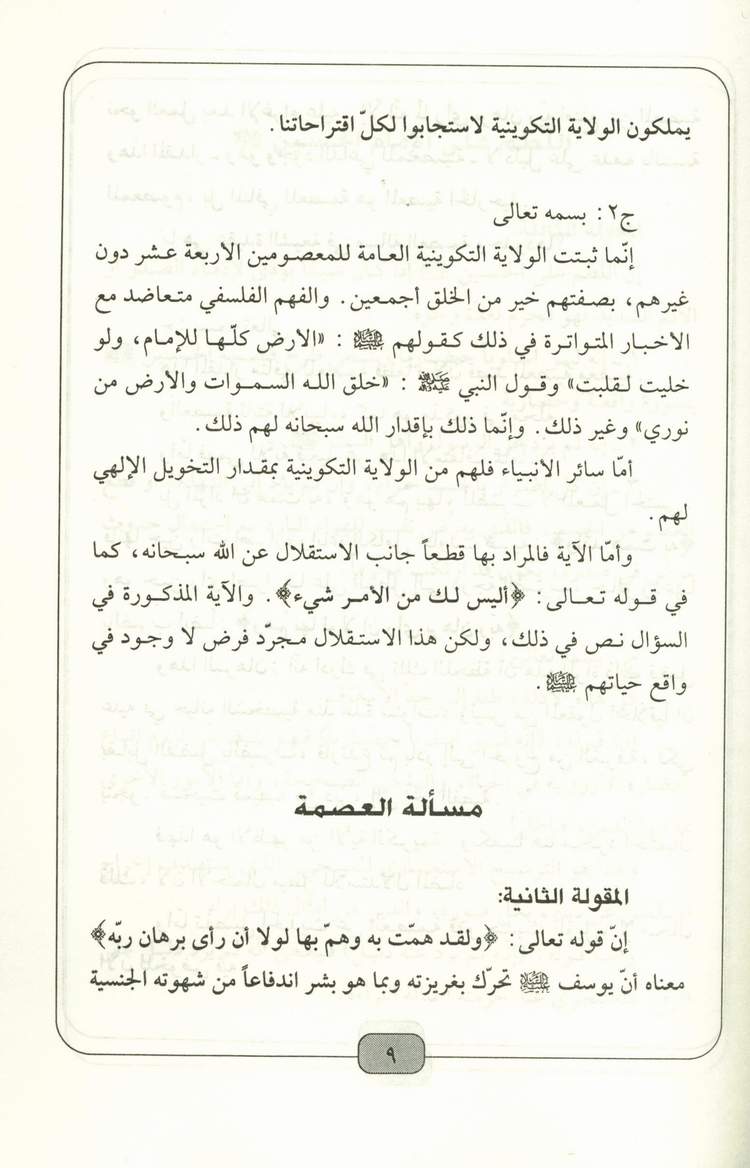 يملكون الولاية التكوينية لاستجابوا لكلّ اقتراحاتنا.
ج٢: بسمه تعالى
إنّما ثبتت الولاية التكوينية العامة للمعصومين الأربعة عشر دون
غيرهم، بصفتهم خير من الخلق أجمعين. والفهم الفلسفي متعاضد مع
الأخبار المتواترة في ذلك كقولهم ﷺ: «الأرض كلّها للإمام، ولو
خليت لقلبت» وقول النبي ﷺ: «خلق الله السموات والأرض من
نوري» وغير ذلك. وإنّما ذلك بإقدار الله سبحانه لهم ذلك.
أمّا سائر الأنبياء فلهم من الولاية التكوينية بمقدار التخويل الإلهي
لهم.
وأمّا الآية فالمراد بها قطعاً جانب الاستقلال عن الله سبحانه، كما
في قوله تعالى: ﴿أليس لك من الأمر شيء﴾. والآية المذكورة في
السؤال نص في ذلك، ولكن هذا الاستقلال مجرّد فرض لا وجود في
واقع حياتهم.
مسألة العصمة
المقولة الثانية:
إنّ قوله تعالى: ﴿ولقد همّت به وهمّ بها لولا أن رأى برهان ربّه﴾
معناه أنّ يوسف تحرّك بغريزته وبما هو بشر اندفاعاً من شهوته الجنسية
٩